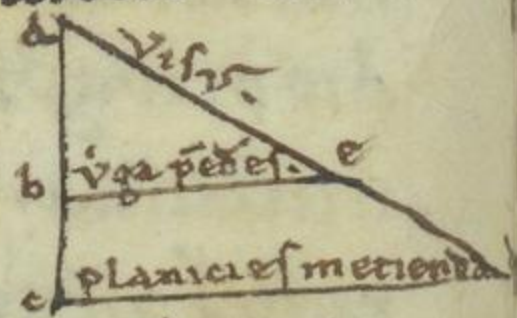 a visus.
b v̇ga p̄cedēs. e
c planicies metienda